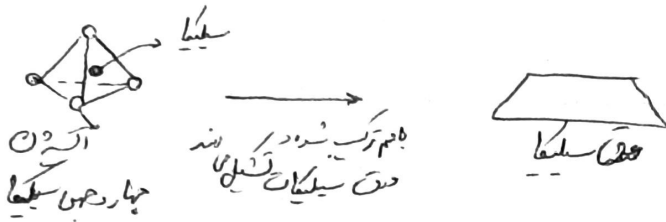 سلیکا
اکسیژن
چهار وجهی سلیکا
باهم ترکیب شده و
ورق سیلیکات تشکیل می دهند
ورق سیلیکا